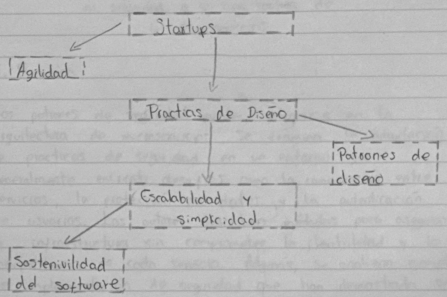 Startups
Agilidad
Practicas de Diseño
Patrones de
diseño
Escalabilidad y
simplicidad
Sostenivilidad
del software